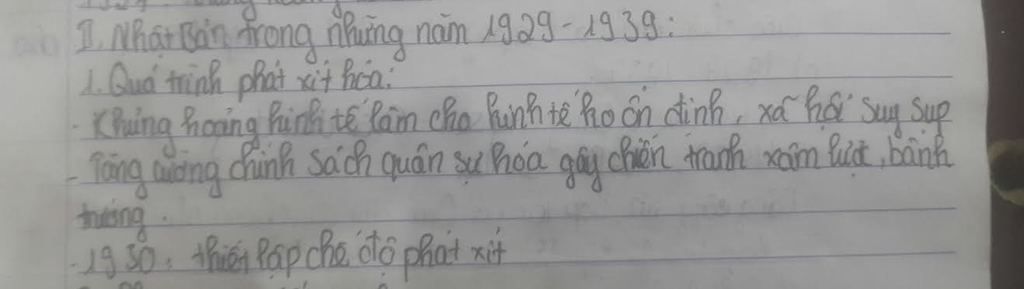 II. Nhật Bản trong những năm 1929-1939:
1. Quá trình phát xít hóa:
- Khủng hoảng kinh tế làm cho kinh tế ko ổn định, xã hội suy sụp
- Tăng cường chính sách quân sự hóa gây chiến tranh xâm lược, bành
trướng.
- 1930: thiết lập chế độ phát xít